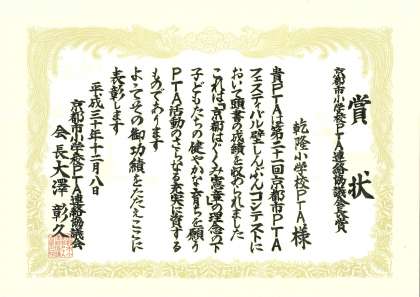 賞状
京都市小学校PTA連絡協議会会長賞
乾隆小学校PTA様
貴PTAは第二十二回京都市PTA
フェスティバル壁しんぶんコンテストに
おいて頭書の成績を収められました
これは「京都はぐくみ憲章」の理念の下
子どもたちの健やかな育ちを願う
PTA活動のさらなる充実に資する
ものであります
よってその御功績をたたえここに
表彰します
平成三十年十二月八日
京都市小学校PTA連絡協議会
会長大澤彰久